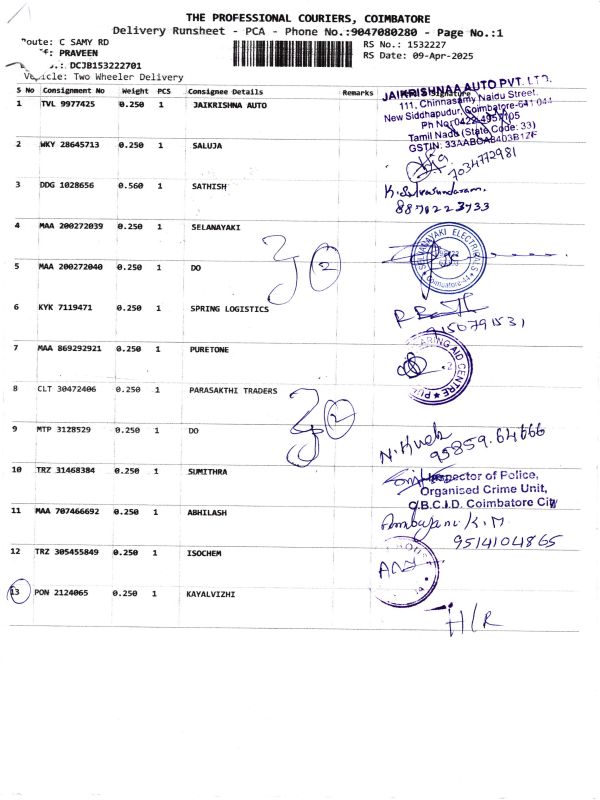 THE PROFESSIONAL COURIERS, COIMBATORE
Delivery Runsheet - PCA - Phone No.:9047080280 - Page No.:1
oute: C SAMY RD
RS No.: 1532227
PRAVEEN
RS Date: 09-Apr-2025
DCJB153222701
Vehicle: Two Wheeler Delivery
S No Consignment No Weight PCS Consignee Details Remarks
1 TVL 9977425 0.250 1 JAIKRISHNA AUTO
JAIKRISHNAA AUTO PVT. LTD.
111, Chinnasamy Naidu Street,
New Siddhapudur, Coimbatore-641 044
Ph No: 0422-4957105
Tamil Nadu (State Code: 33)
GSTIN: 33AABCA8403B1ZF
2 WKY 28645713 0.250 1 SALUJA
7034772981
3 DDG 1028656 0.560 1 SATHISH
K. Selvasundaram.
8870223733
4 MAA 200272039 0.250 1 SELANAYAKI
SELANAYAKI ELECTRICALS
Coimbatore-44
5 MAA 200272040 0.250 1 DO
2
6 KYK 7119471 0.250 1 SPRING LOGISTICS
9150791531
7 MAA 869292921 0.250 1 PURETONE
ARING AID CENTRE
8 CLT 30472406 0.250 1 PARASAKTHI TRADERS
2
9 MTP 3128529 0.250 1 DO
95859.64666
10 TRZ 31468384 0.250 1 SUMITHRA
Inspector of Police,
Organised Crime Unit,
C.B.C.I.D. Coimbatore City
11 MAA 707466692 0.250 1 ABHILASH
K. M
9514104865
12 TRZ 305455849 0.250 1 ISOCHEM
13 PON 2124065 0.250 1 KAYALVIZHI
H/R